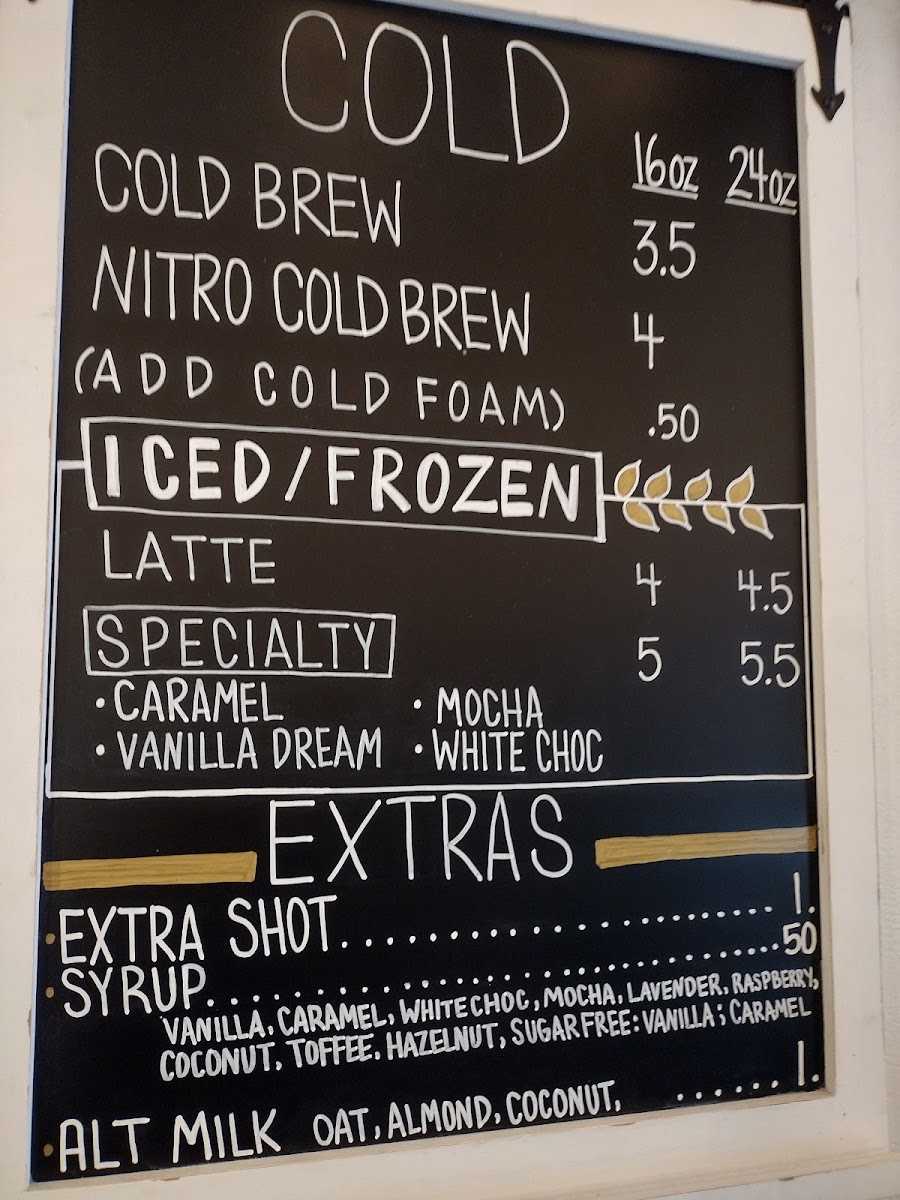 COLD
16oz 24oz
COLD BREW 3.5
NITRO COLD BREW 4
(ADD COLD FOAM) .50
ICED/FROZEN
LATTE 4 4.5
SPECIALTY 5 5.5
• CARAMEL • MOCHA
• VANILLA DREAM • WHITE CHOC
EXTRAS
• EXTRA SHOT...................... 1.
• SYRUP.............................. .50
VANILLA, CARAMEL, WHITE CHOC, MOCHA, LAVENDER, RASPBERRY,
COCONUT, TOFFEE, HAZELNUT, SUGAR FREE: VANILLA; CARAMEL
• ALT MILK OAT, ALMOND, COCONUT, ...... 1.